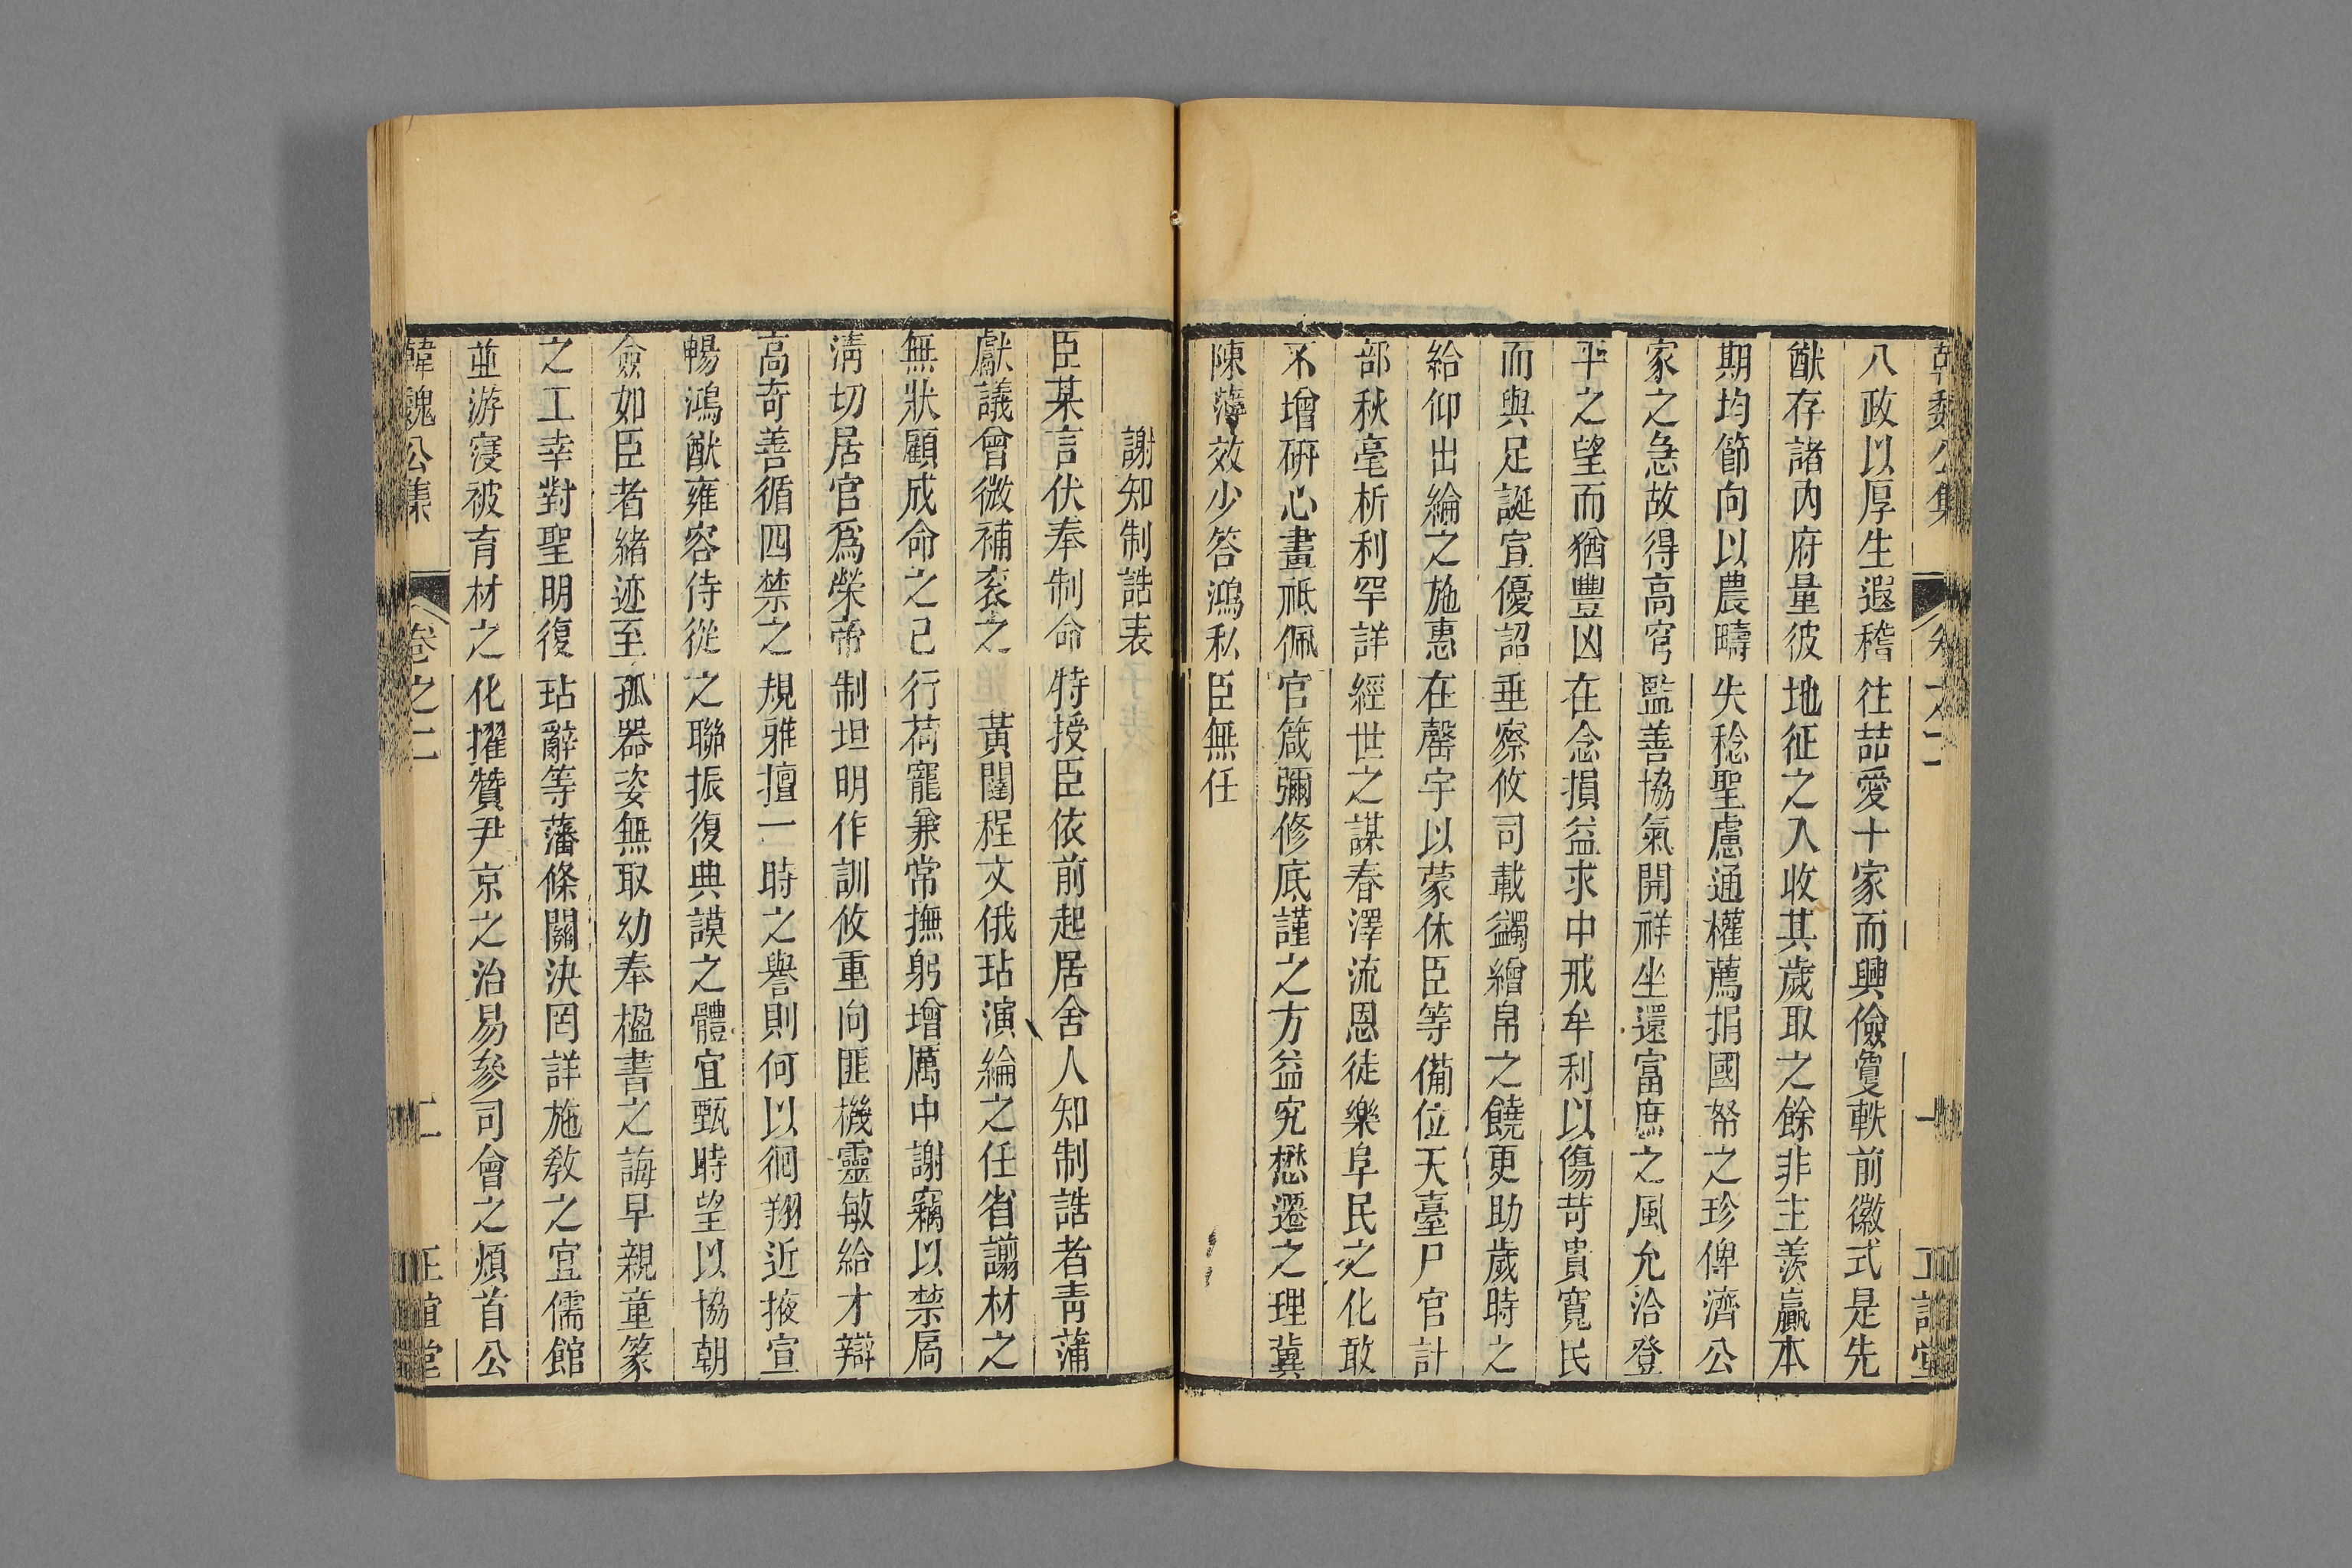 韓魏公集 卷之二 一 正誼堂
八政以厚生遐稽往喆愛十家而興儉敻軼前徽式是先
猷存諸內府量彼地征之入收其歲取之餘非主羨贏本
期均節向以農疇失稔聖慮通權薦捐國帑之珍俾濟公
家之急故得高穹監善協氣開祥坐還富庶之風允洽登
平之望而猶豐凶在念損益求中戒牟利以傷苛貴寬民
而與足誕宣優詔垂察攸司載蠲繒帛之饒更助歲時之
給仰出綸之施惠在罄宇以蒙休臣等備位天臺尸官計
部秋毫析利罕詳經世之謀春澤流恩徒樂阜民之化敢
不增硏心畫祗佩官箴彌修底謹之方益究懋遷之理冀
陳薄效少答鴻私臣無任
謝知制誥表
臣某言伏奉制命特授臣依前起居舍人知制誥者靑蒲
獻議曾微補袞之黃闥程文俄玷演綸之任省謭材之
無狀顧成命之已行荷寵兼常撫躬增厲中謝竊以禁扄
淸切居官爲榮帝制坦明作訓攸重向匪機靈敏給才辯
高奇善循四禁之規雅擅一時之譽則何以徊翔近掖宣
暢鴻猷雍容侍從之聯振復典謨之體宜甄時望以協朝
僉如臣者緒迹至孤器姿無取幼奉楹書之誨早親童篆
之工幸對聖明復玷辭等藩條關決罔詳施敎之宜儒館
並游寖被育材之化擢贊尹京之治易參司會之煩首公
韓魏公集 卷之二 二 正誼堂